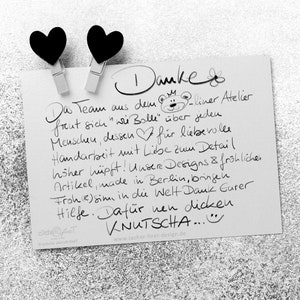 Danke
Das Team aus dem -liner Atelier
freut sich "wie Bolle" über jeden
Menschen, dessen ♡ für liebevolle
Handarbeit mit Liebe zum Detail
höher hüpft! Unsere Designs & fröhlichen
Artikel, made in Berlin, bringen
Froh(s)inn in die Welt Dank Eurer
Hilfe. Dafür nen dicken
KNUTSCHA...